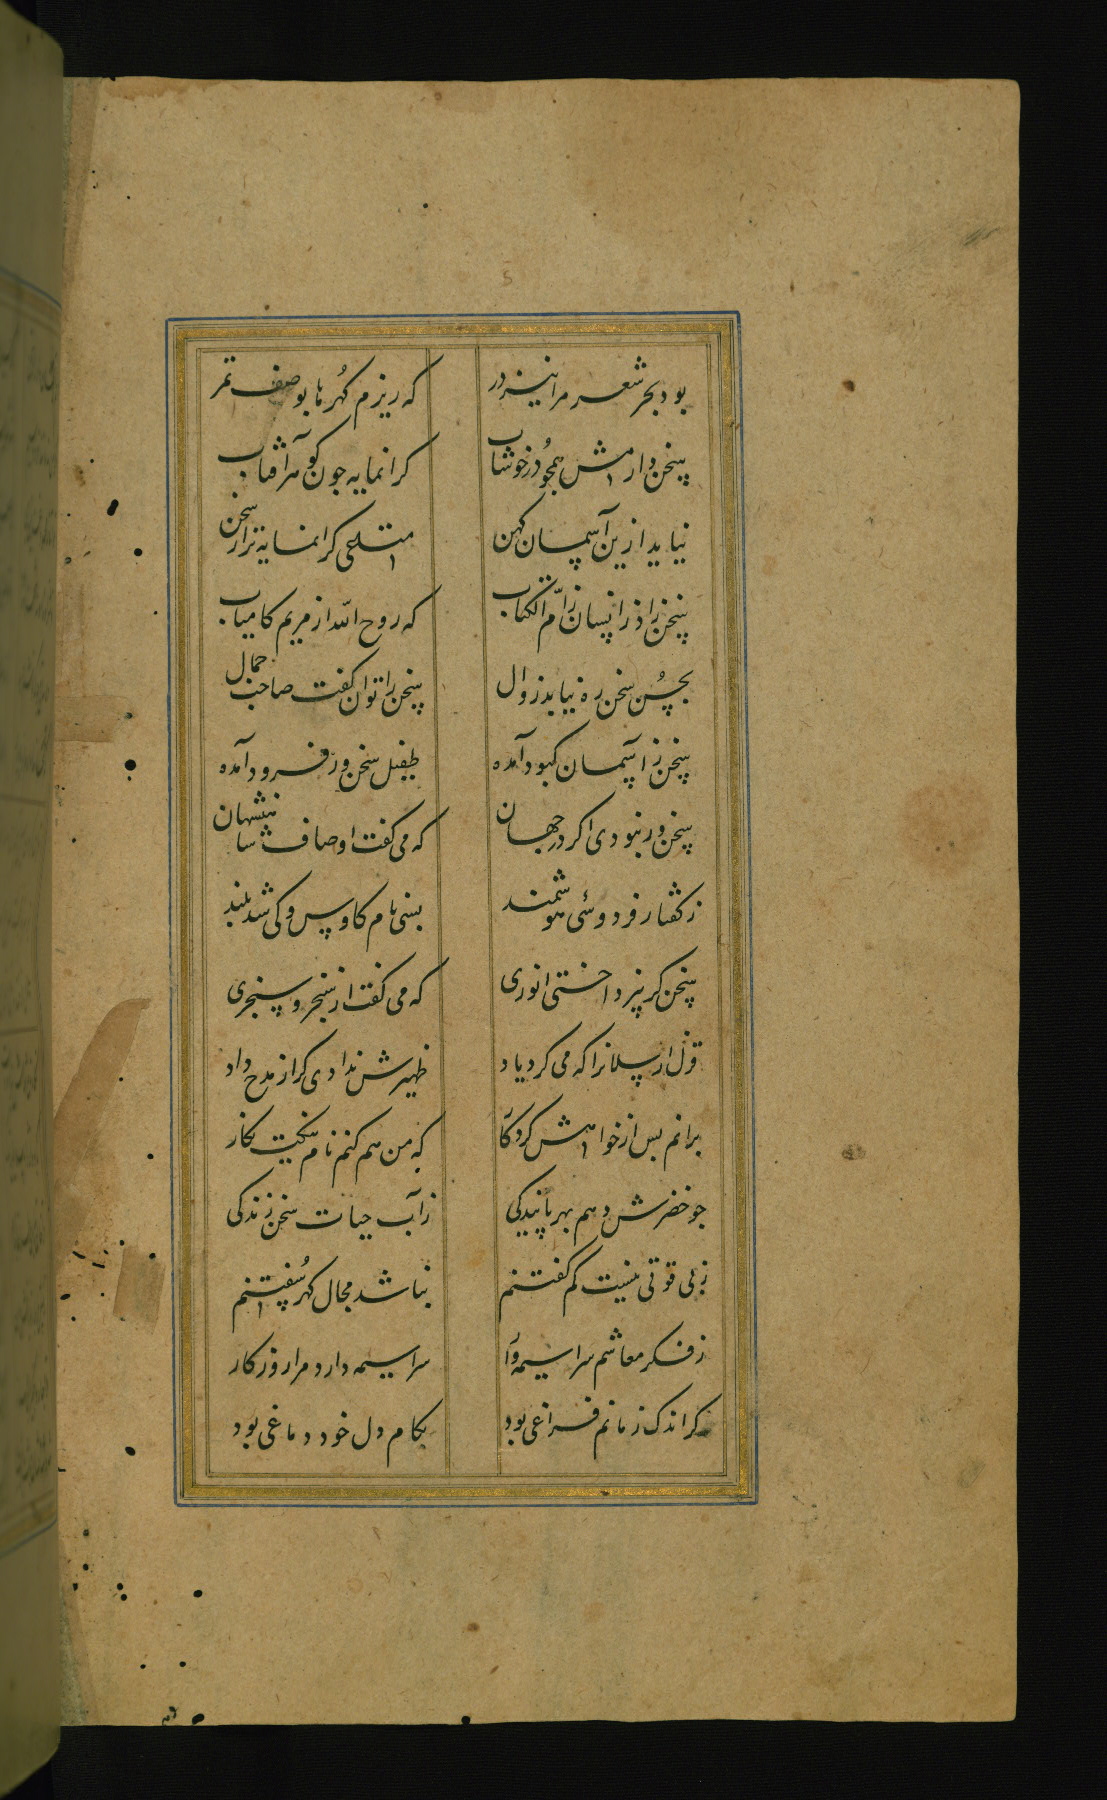 5
بود بحر شعر مرا نیز در
که ریزم کهُرها بوصف تمر
سخن دارمش همچو دُر خوشاب
کرانمایه جون کوهر آفتاب
نیاید ازین آسمان کهن
متاعی کرانمایه تر از سخن
سخن زاد ز انسان ز امّ الکتاب
که روح الله از مریم کامیاب
بحُسن سخن ره نیابد زوال
سخن را توان کفت صاحب جمال
سخن ز آسمان کبود آمده
طفیل سخن ور فرود آمده
سخن ور نبودی اکر در جهان
که می کفت اوصاف شاهنشهان
ز کفتار فردوسی هوشمند
بسی نام کاوس و کی شد بلند
سخن کر نپرداختی انوری
که می کفت از سنجر و سنجری
قزل ارسلانرا که می کرد یاد
ظهیرش ندادی کر از مدح داد
برانم بس از خواهش کردکار
که من هم کنم نام نیکت نکار
جو خضرش دهم بهر پایندکی
ز آب حیات سخن زندکی
ز بی قوتی نیست کم کفتنم
نباشد مجال کهر سُفتنم
ز فکر معاشم سراسیمه وار
سراسیمه دارد مرا روزکار
کر اندک زمانم فراغی بود
بکام دل خود دماغی بود